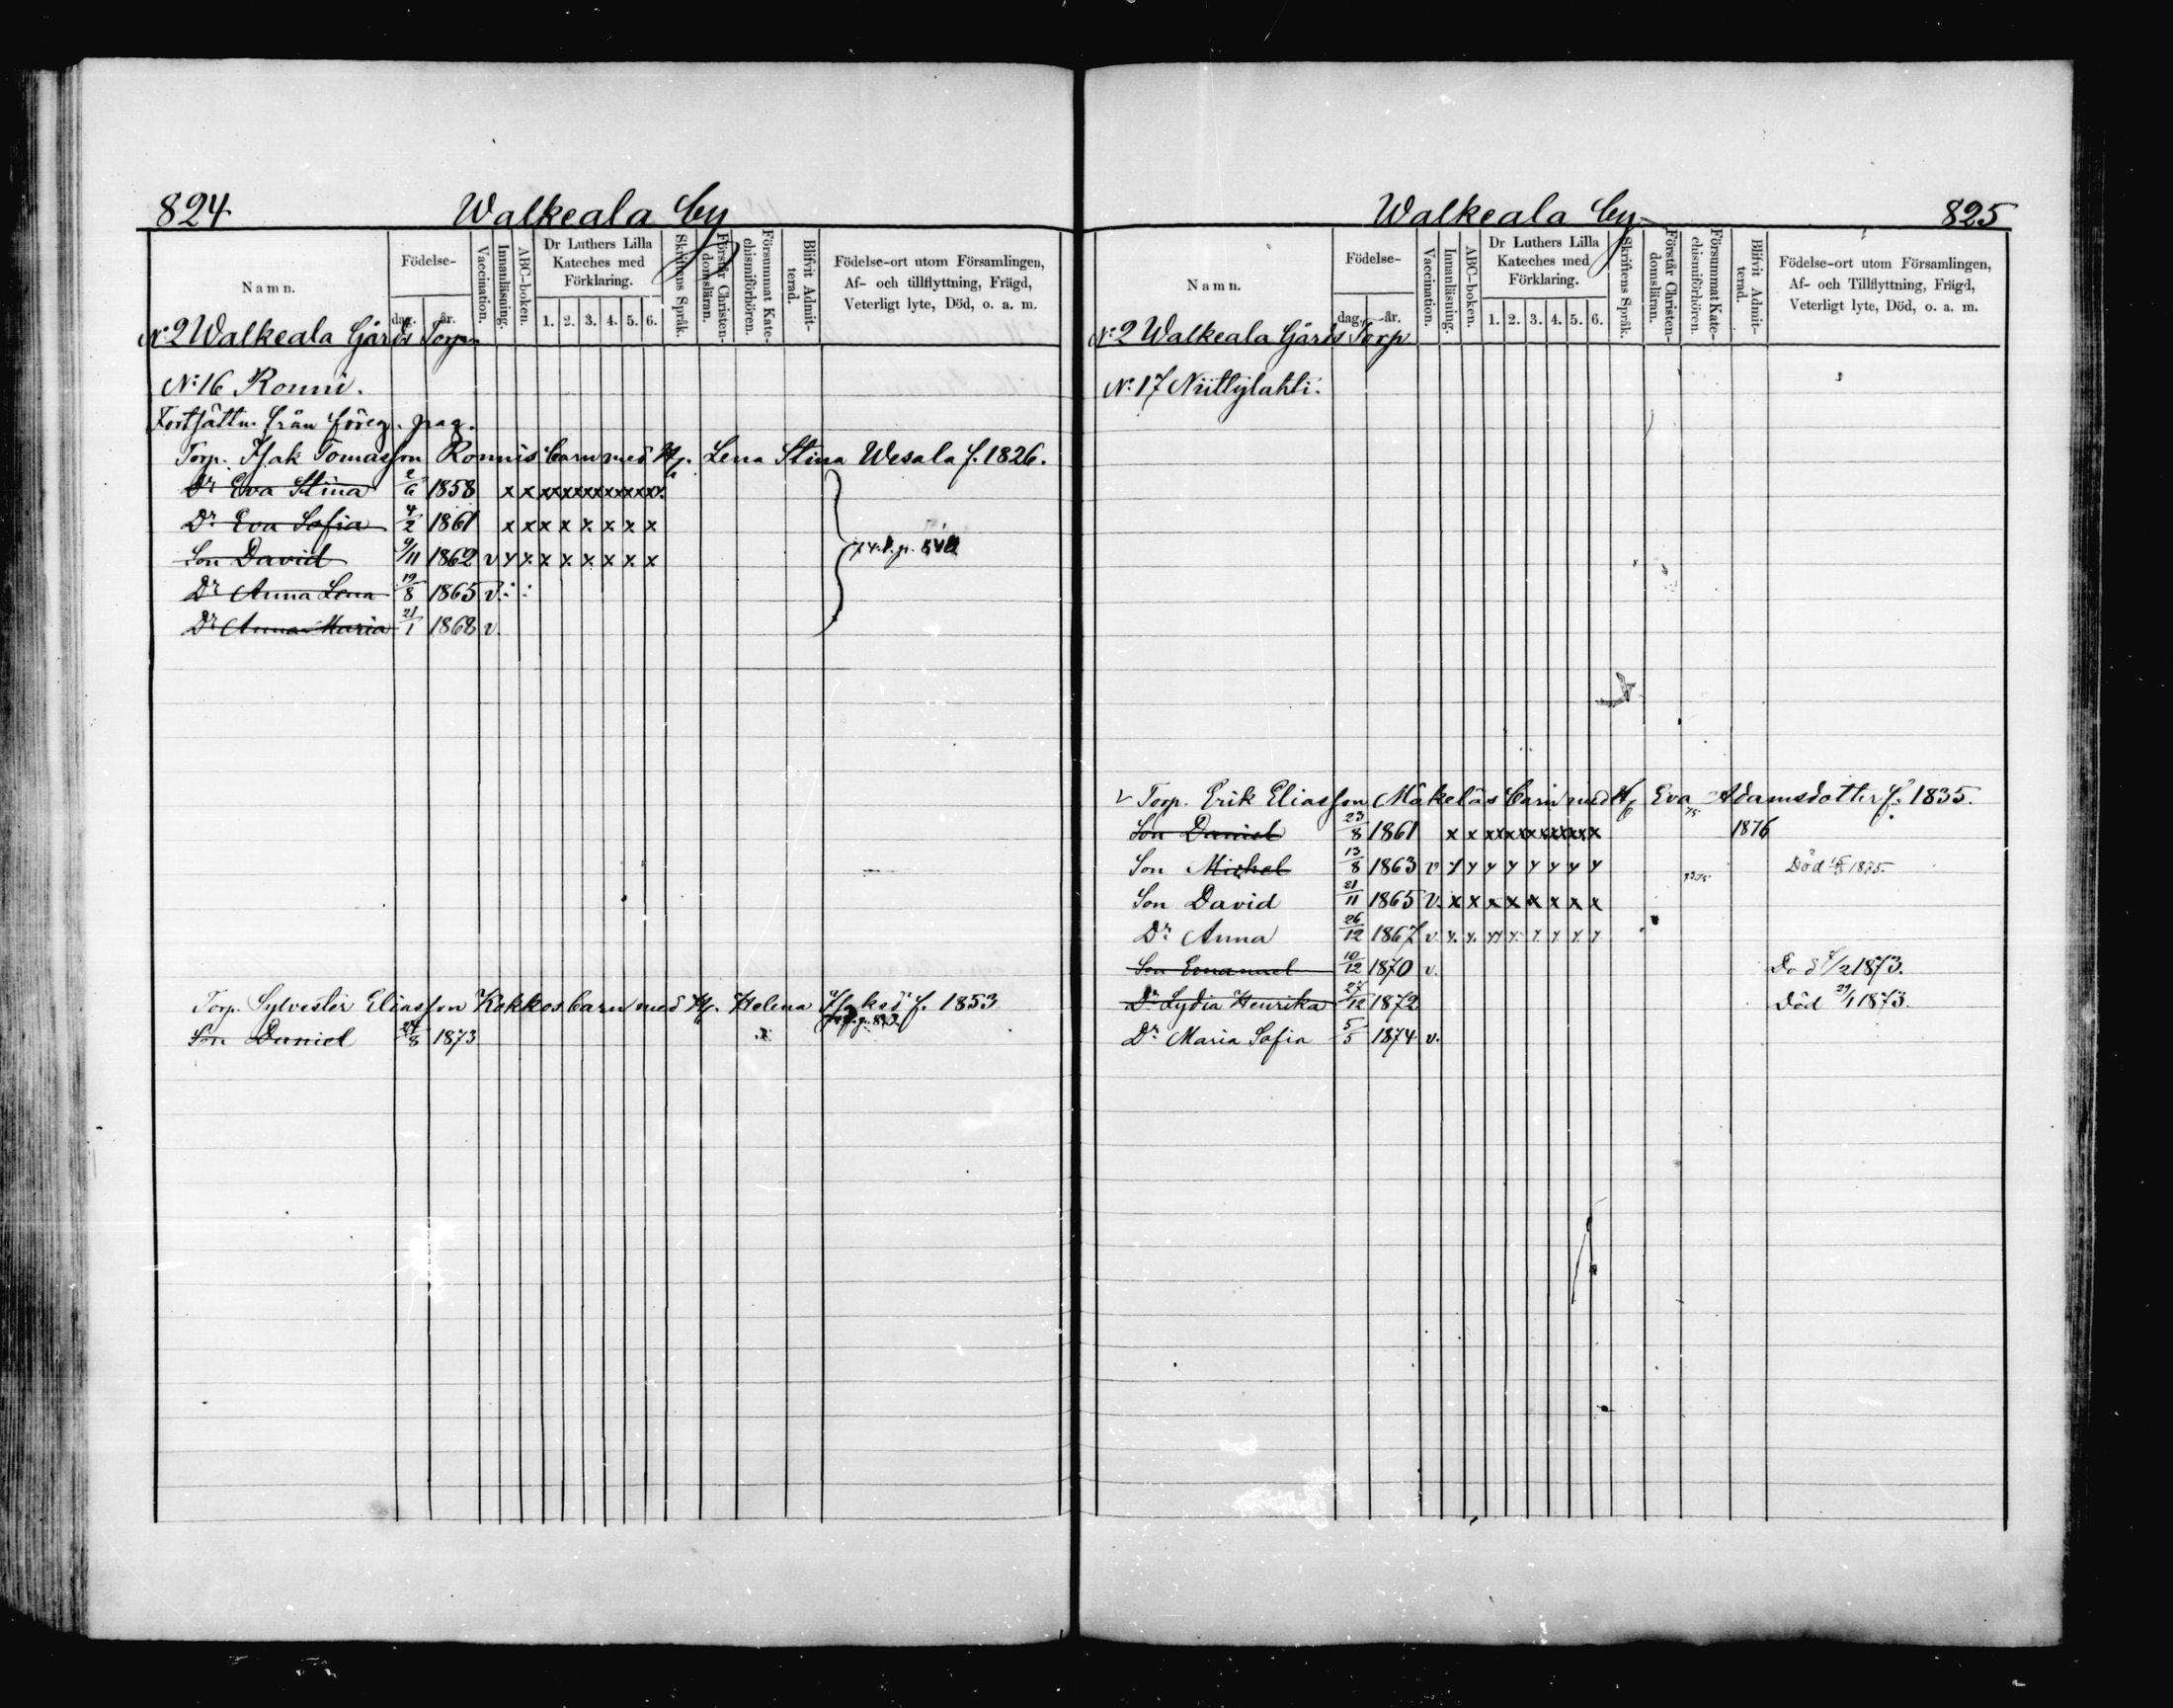 824 Walkeala by
Namn. Födelse- dag. år. Vaccination. Innanläsning. ABC-boken. Dr Luthers Lilla Kateches med Förklaring. 1. 2. 3. 4. 5. 6. Skriftens Språk. Förstår Christendomsläran. Försummat Katechismiförhören. Blifvit Admitterad. Födelse-ort utom Församlingen, Af- och tillflyttning, Frägd, Veterligt lyte, Död, o. a. m.
N:o 2 Walkeala Gårds Torp
N:o 16 Ronni.
Fortsättn. från föreg. pag.
Torp. Isak Tomasson Ronnis barn med H. Lena Stina Wesala f. 1826.
Dr Eva Stina 2/6 1858 x x x x x x x x x x x
Dr Eva Sofia 4/2 1861 x x x x x x x x
Son David 9/11 1862 v x x x x x x x x
Dr Anna Lena 19/8 1865 v
Dr Anna Maria 21/1 1868 v.
Torp. Sylvester Eliasson Kokkos barn med H. Helena Isaksd f. 1853
Son Daniel 24/8 1873
Walkeala by 825
Namn. Födelse- dag. år. Vaccination. Innanläsning. ABC-boken. Dr Luthers Lilla Kateches med Förklaring. 1. 2. 3. 4. 5. 6. Skriftens Språk. Förstår Christendomsläran. Försummat Katechismiförhören. Blifvit Admitterad. Födelse-ort utom Församlingen, Af- och Tillflyttning, Frägd, Veterligt lyte, Död, o. a. m.
N:o 2 Walkeala Gårds Torp
N:o 17 Niittylahti.
v Torp. Erik Eliasson Mäkeläs barn med H. Eva Adamsdotter f. 1835.
Son Daniel 23/8 1861 x x x x x x x x x x x 1876
Son Michel 13/8 1863 v x x x x x x x x Död 1875.
Son David 21/11 1865 v. x x x x x x x x
Dr Anna 26/12 1867 v x x x x x x x x
Son Emanuel 10/12 1870 v. Död 7/2 1873.
Dr Lydia Henrika 27/12 1872 Död 29/1 1873.
Dr Maria Sofia 5/5 1874 v.